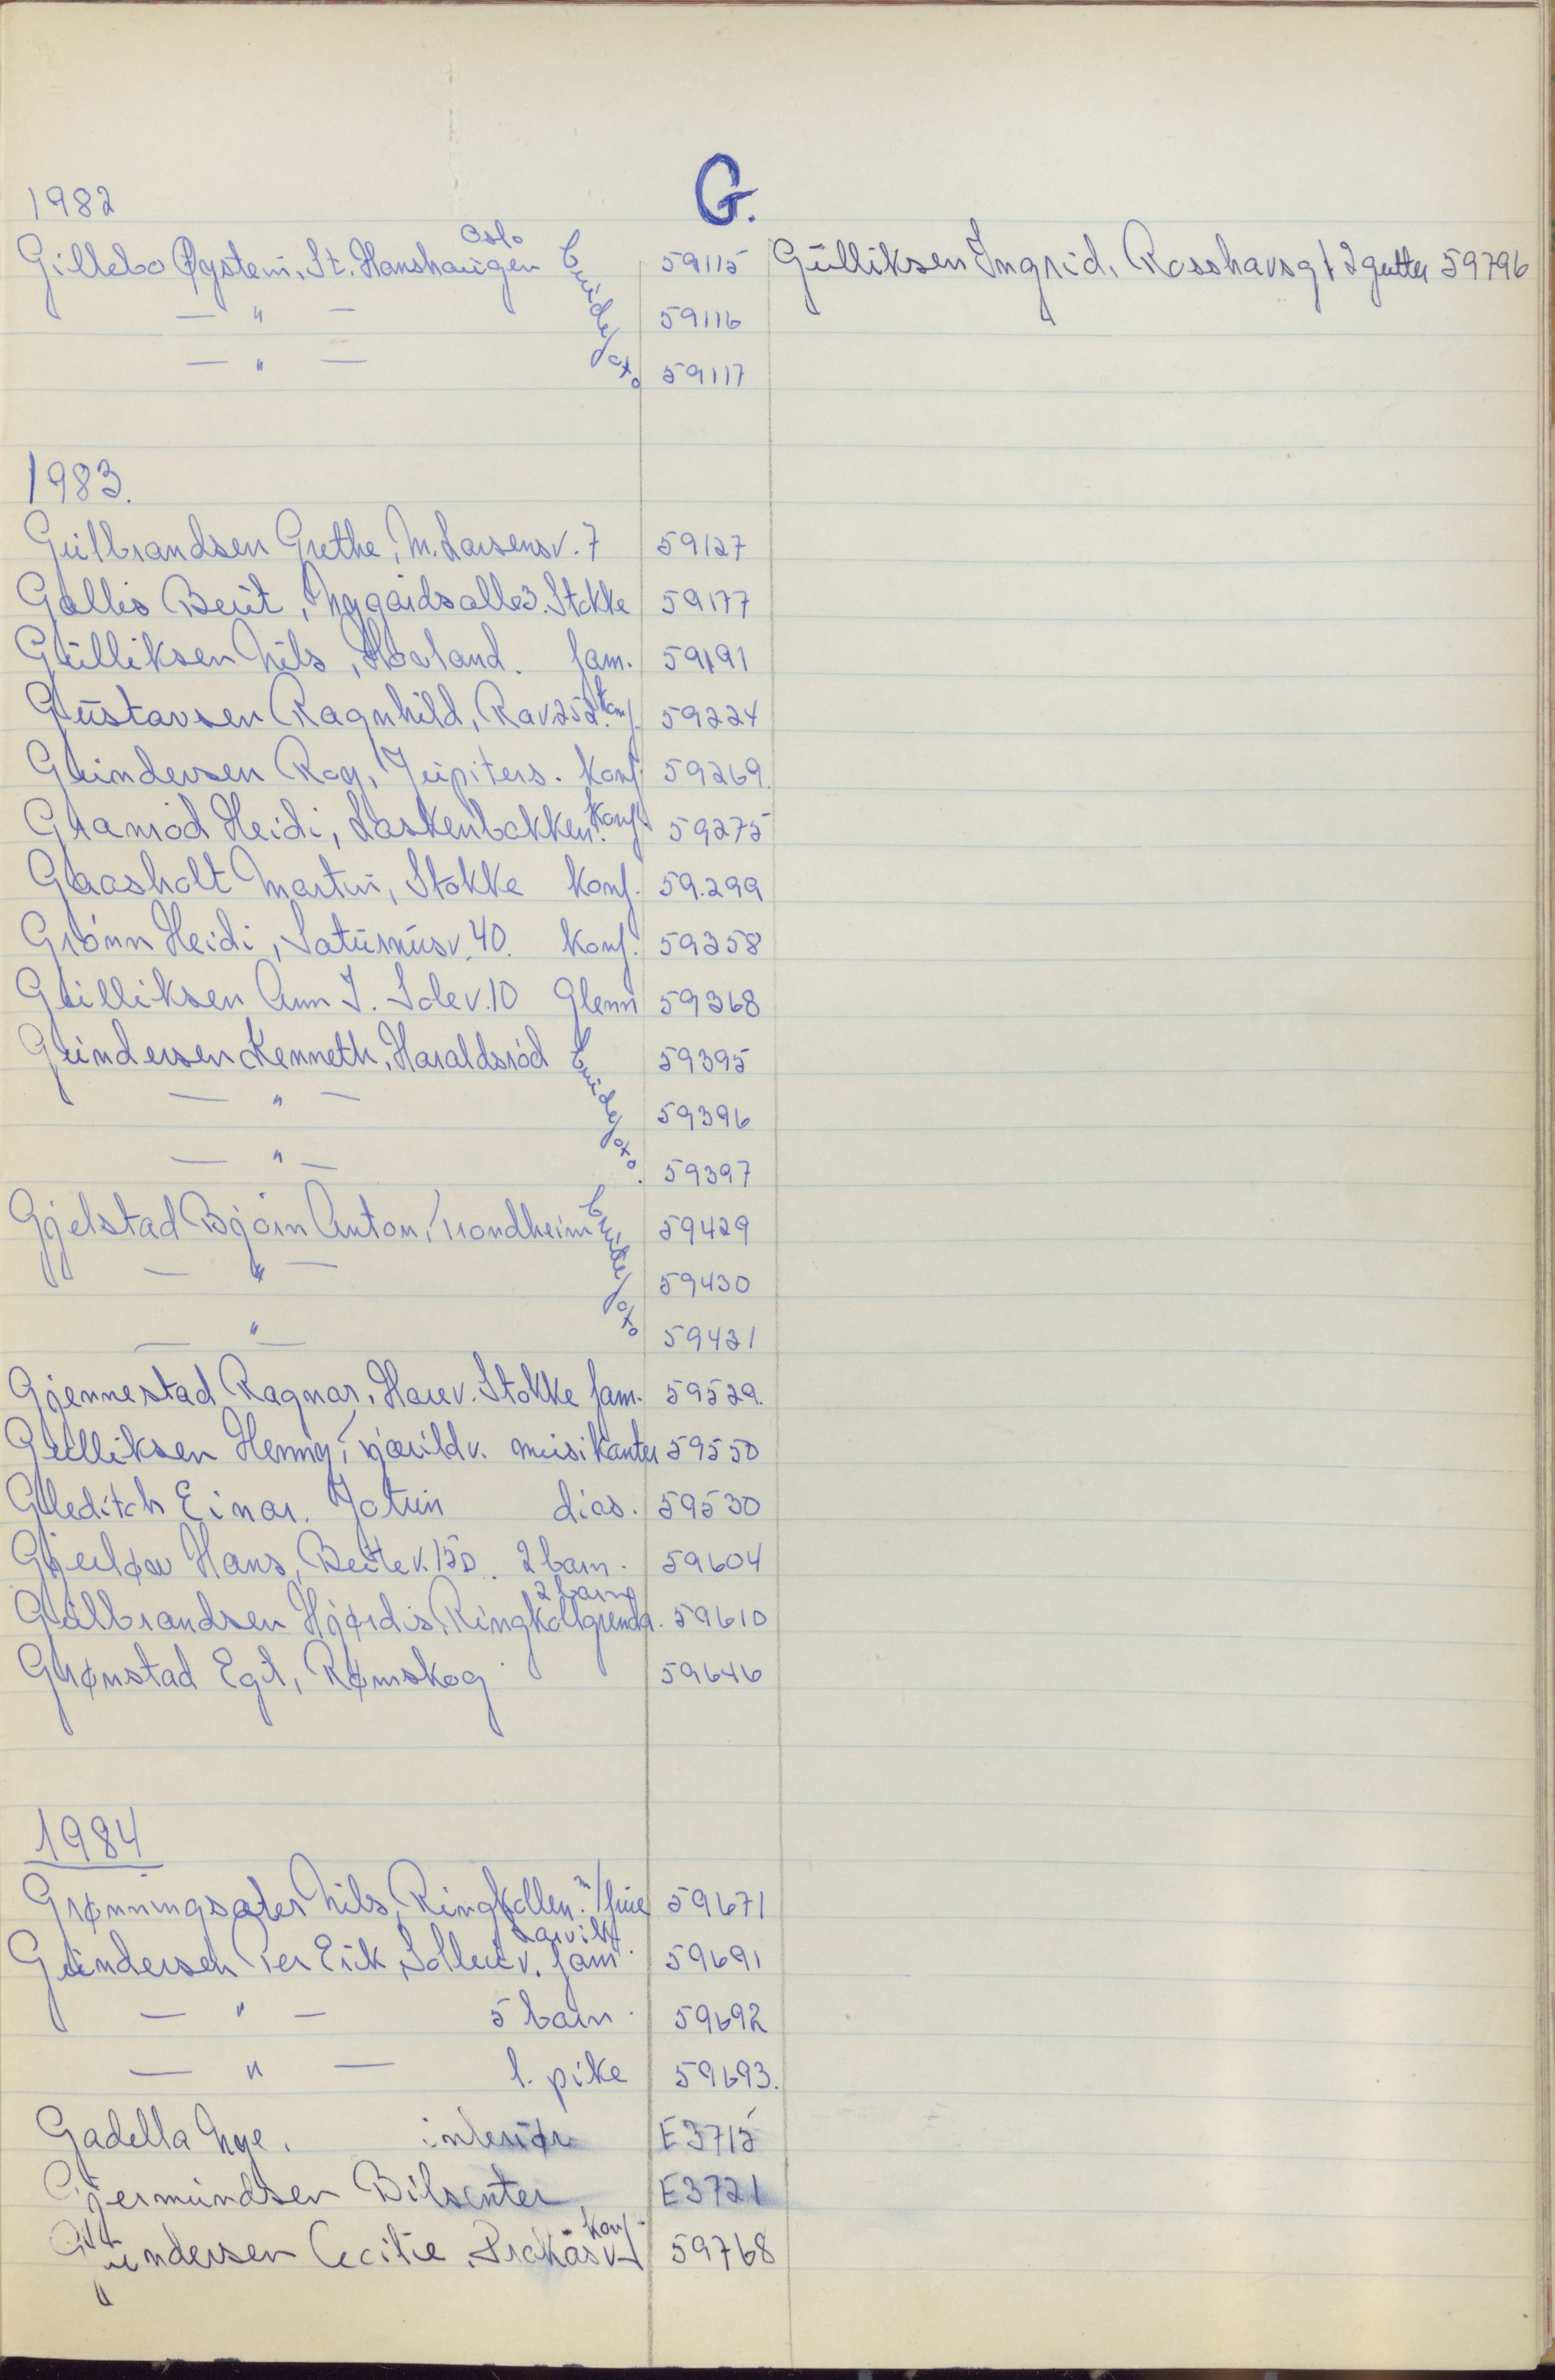 G.
1982
Gillebo Øystein, St. Hanshaugen Oslo brudefoto 59115
— " — 59116
— " — 59117
1983.
Gulbrandsen Grethe, M. Larsensv. 7 59127
Gallis Berit, Nygårdsalle 3. Stokke 59177
Gulliksen Nils, Haaland. fam. 59191
Gustavsen Ragnhild, Rav 252. konf. 59224
Gundersen Roy, Jupiters. konf. 59269.
Gramód Heidi, Laskenbakken. konf. 59275
Gaasholt Martin, Stokke konf. 59.299
Grónn Heidi, Saturnusv. 40. konf. 59358
Gulliksen Ann I. Idev. 10 Glenn 59368
Gundersen Kenneth, Haraldsród brudefoto 59395
— " — 59396
— " — 59397
Gjelstad Bjórn Anton, Trondheim brudefoto 59429
— " — 59430
— " — 59431
Gjennestad Ragnar, Harev. Stokke fam. 59529.
Gulliksen Henny, Tjærildv. musikanter 59550
Gleditch Einar. Jotun dias. 59530
Gjerløw Hans, Beitev. 15D. 2 barn. 59604
Gulbrandsen Hjørdis, Ringkollgrenda. 2 barn 59610
Grønstad Egil, Rømskog 59646
1984
Grønningsæter Nils, Ringkollen. m/frue 59671
Gundersen Per Erik, Solleiv. Larvik fam. 59691
— " — 5 barn. 59692
— " — 1. pike 59693.
Gadella Nye. interiør E3715
Gjermundsen Bilsenter, E3721
Gundersen Cecilie, Prokåsv. konf. 59768
Gulliksen Ingrid, Rosshavsgt 2 gutter 59796